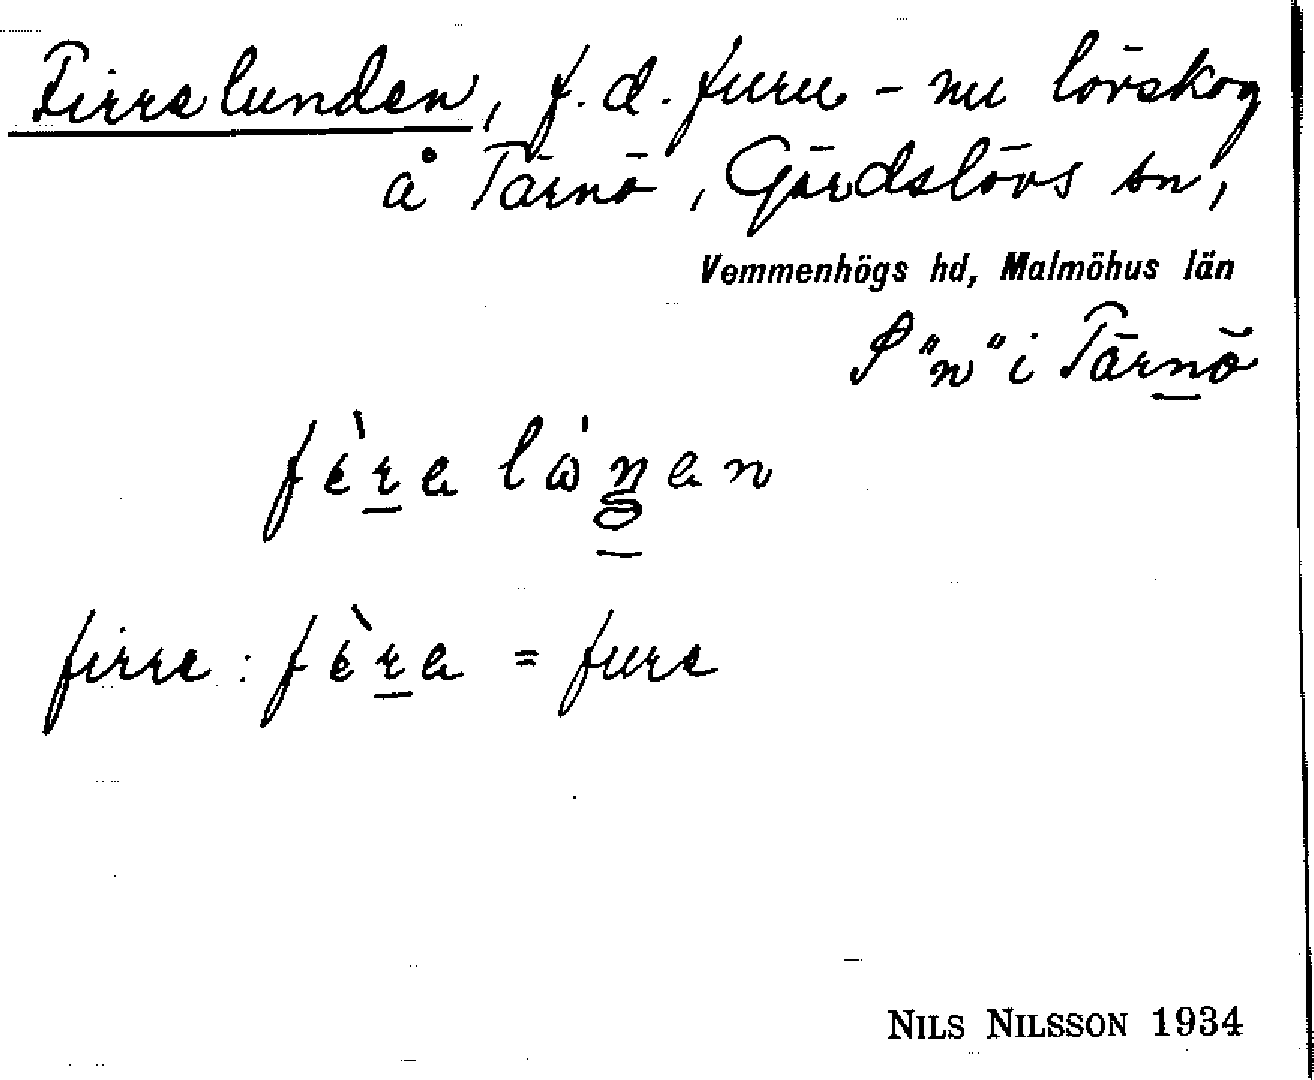 Firrelunden, f.d. furu - nu lövskog
å Tärnö, Gärdslövs sn,
Vemmenhögs hd, Malmöhus län
S "n" i Tärnö
fèra lώŋan
firre : fèra = fure
NILS NILSSON 1934